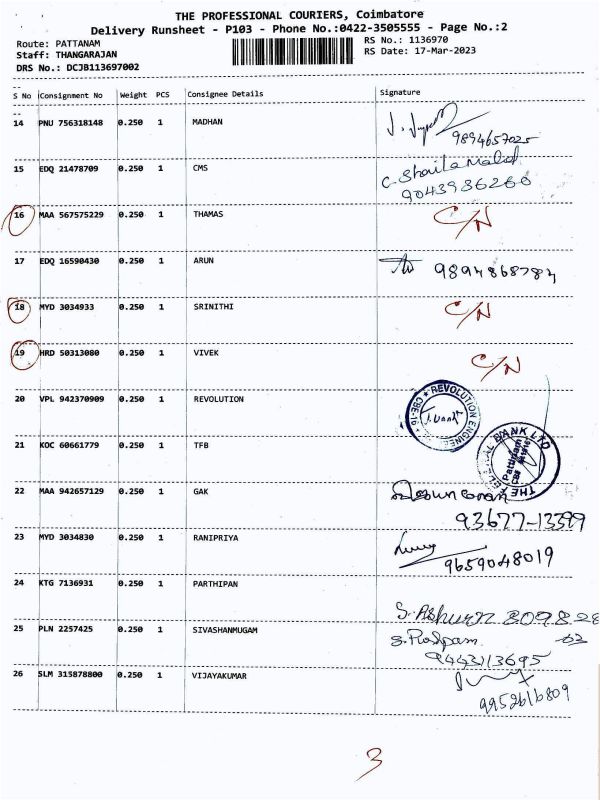 THE PROFESSIONAL COURIERS, Coimbatore
Delivery Runsheet - P103 - Phone No.:0422-3505555 - Page No.:2
Route: PATTANAM
RS No.: 1136970
Staff: THANGARAJAN
RS Date: 17-Mar-2023
DRS No.: DCJB113697002
S No Consignment No Weight PCS Consignee Details Signature
14 PNU 756318148 0.250 1 MADHAN
9894657025
15 EDQ 21478709 0.250 1 CMS
9043936260
16 MAA 567575229 0.250 1 THAMAS C/N
17 EDQ 16590430 0.250 1 ARUN 9894868784
18 MYD 3034933 0.250 1 SRINITHI C/N
19 HRD 50313080 0.250 1 VIVEK C/N
20 VPL 942370909 0.250 1 REVOLUTION
REVOLUTION ENGINEE
CBE-16
21 KOC 60661779 0.250 1 TFB
THE FEDERAL BANK LTD
Pattanam
22 MAA 942657129 0.250 1 GAK
93677-13399
23 MYD 3034830 0.250 1 RANIPRIYA
9659048019
24 KTG 7136931 0.250 1 PARTHIPAN
S. Ashwin 809828
25 PLN 2257425 0.250 1 SIVASHANMUGAM
9443113695
26 SLM 315878800 0.250 1 VIJAYAKUMAR
9952616809
3